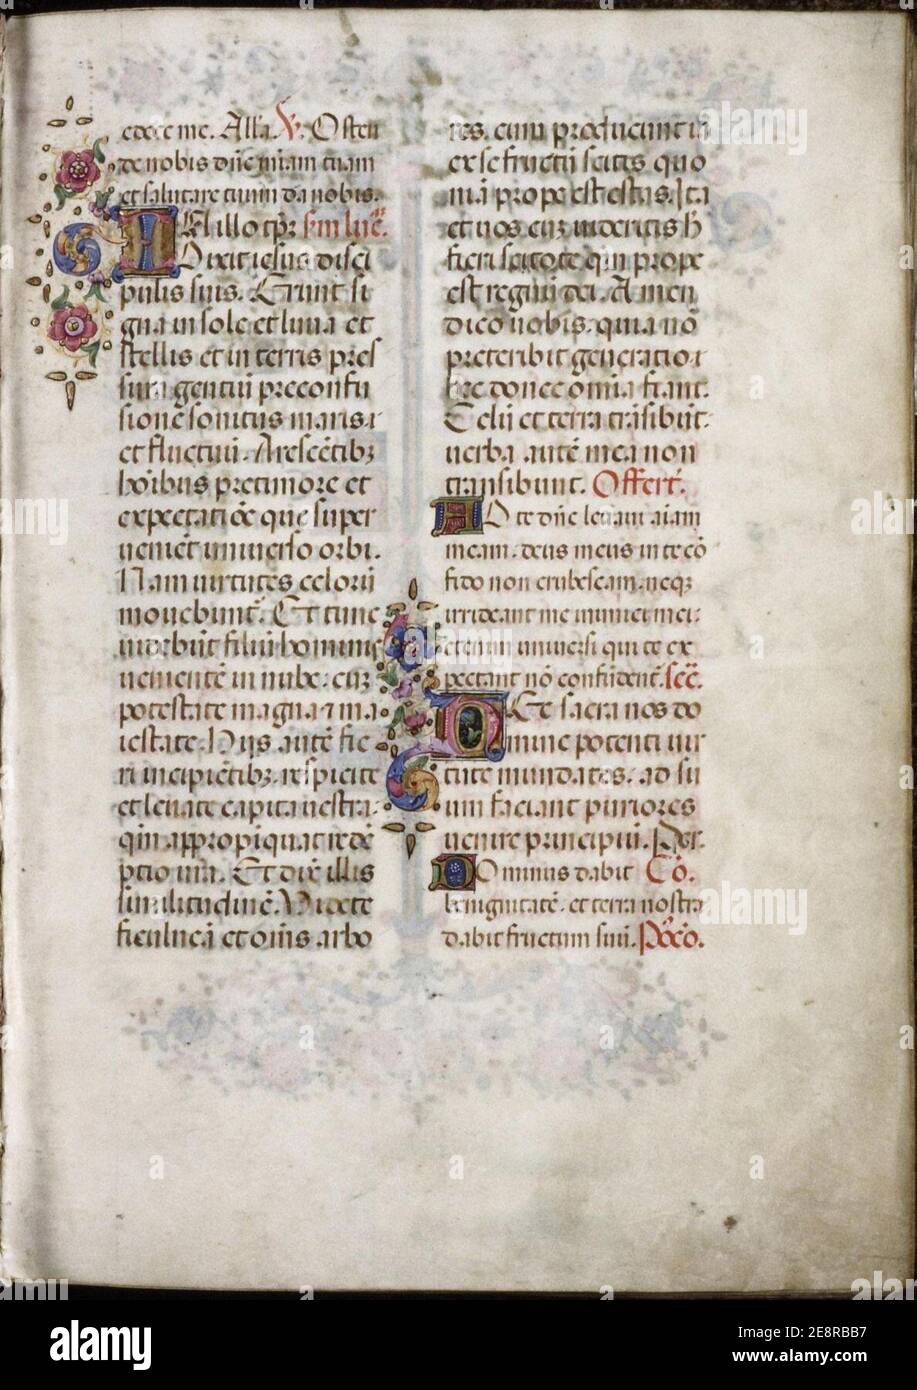 edoce me. Alla. V. Osten
de nobis dñe mīam tuam
et salutare tuum da nobis.
IN illo tpr̄ sm lucā.
Dixit iesus disci
pulis suis. Erunt si
gna in sole et luna et
stellis et in terris pres
sura gentiū pre confu
sione sonitus maris.
et fluctuū. Arescētibꝫ
hoībus pre timore et
expectatiōe que super
venient universo orbi.
Nam virtutes celorū
movebunt̄. Et tunc
videbūt filiū hominis
venientē in nube. cuꝫ
potestate magna ⁊ ma
iestate. Hijs autē fie
ri incipiētibꝫ. respicite
et levate capita vestra.
qm̄ appropiquat redē
ptio vr̄a. Et dix̄ illis
similitudinē. Videte
ficulneā et om̄s arbo
res. cum producunt iā
ex se fructū scitis quo
niā prope est estas. Ita
et vos cuꝫ videritis h̄
fieri scitote qm̄ prope
est regnū dei. Amen
dico vobis. quia nō
preteribit generatio
hec donec om̄ia fiant.
Celū et terra trāsibūt.
verba autē mea non
transibunt. Offert.
AD te dñe levavi aīam
meam. deus meus in te cō
fido non erubescam. neqꝫ
irrideant me inimici mei.
etenim universi qui te ex
pectant nō confūdent̄. secr̄.
HEc sacra nos do
mine potenti vir
tute mundatos. ad su
um faciant puriores
venire principiū. Per.
DOminus dabit Cō.
benignitatē. et terra nostra
dabit fructum suū. Poꝰcō.
alamy
www.alamy.com
Image ID: 2E8RBB7